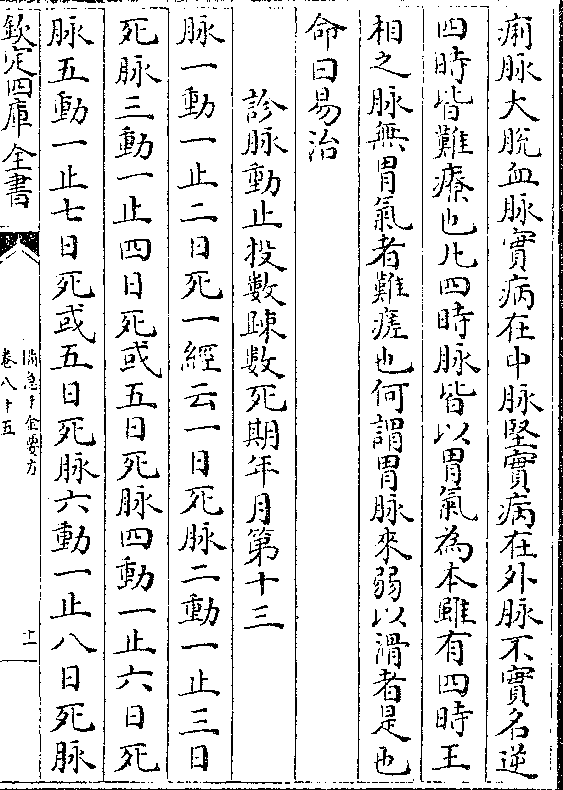 痢脉大脫血脉實病在中脉堅實病在外脉不實名逆
四時皆難療也凡四時脉皆以胃氣為本雖有四時王
相之脉無胃氣者難瘥也何謂胃脉來弱以滑者是也
命曰易治
診脉動止投數踈數死期年月第十三
脉一動一止二日死一經云一日死脉二動一止三日
死脉三動一止四日死或五日死脉四動一止六日死
脉五動一止七日死或五日死脉六動一止八日死脉
欽定四庫全書
備急千金要方
卷八十五
十一